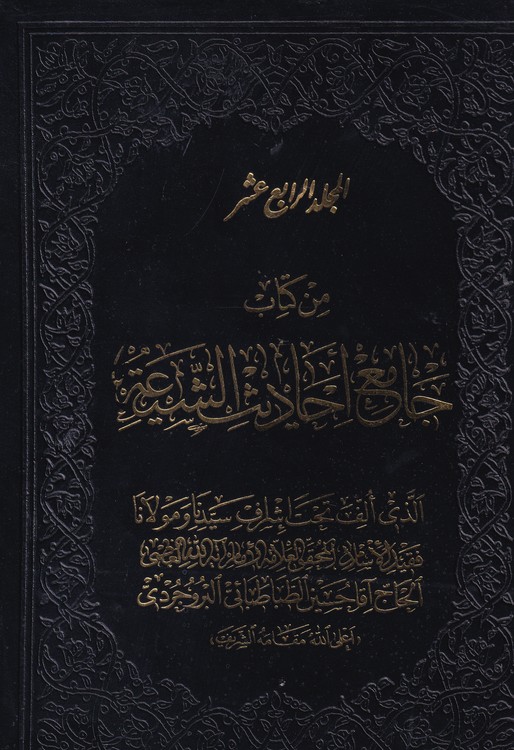 المجلد الرابع عشر
مِن كِتاب
جامع أحاديث الشّيعة
الَّذي أُلف تحت إشراف سيّدنا ومولانا
فقيد الإسلام المحقق العلامة الإمام آية الله العظمى
الحاج آقا حسين الطباطبائي البروجردي
(أعلى الله مقامه الشريف)